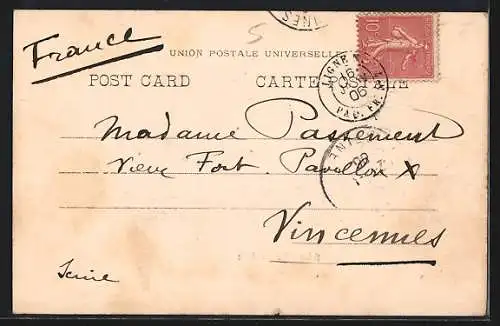 France
UNION POSTALE UNIVERSELLE
POST CARD CARTE POSTALE
10
LIGNE
PAQ. FR.
Madame Passement
Vieux Fort. Pavillon X
Vincennes
Seine